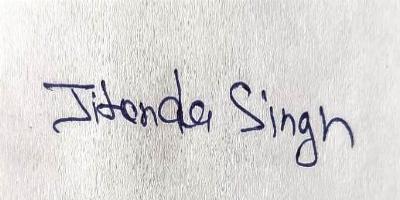 Jitenda Singh